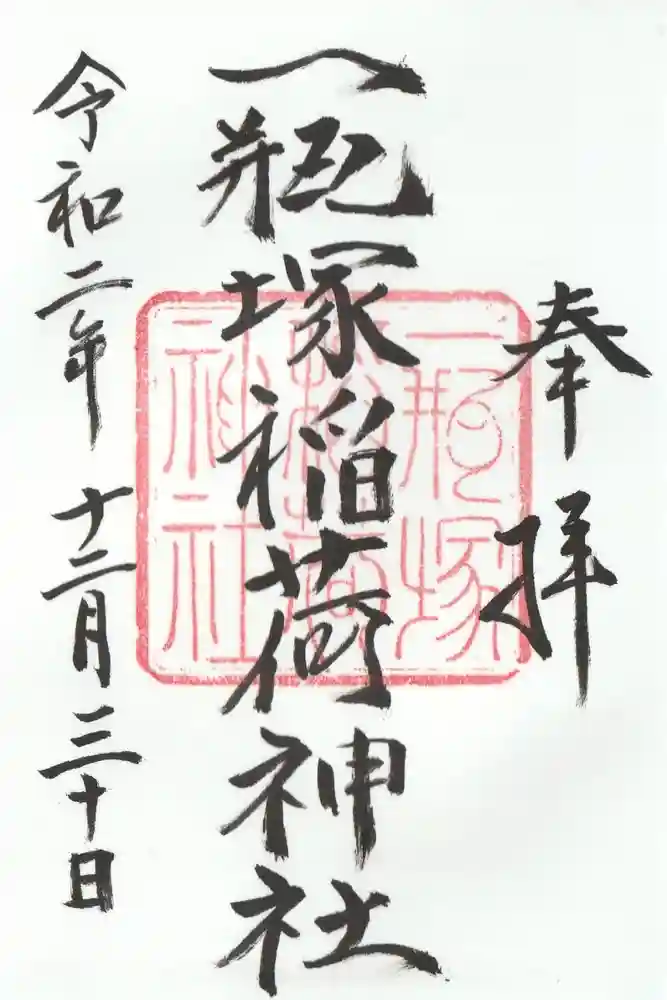 奉拝
一瓶塚稲荷神社
一瓶塚
稲荷
神社
令和二年 十二月 三十日